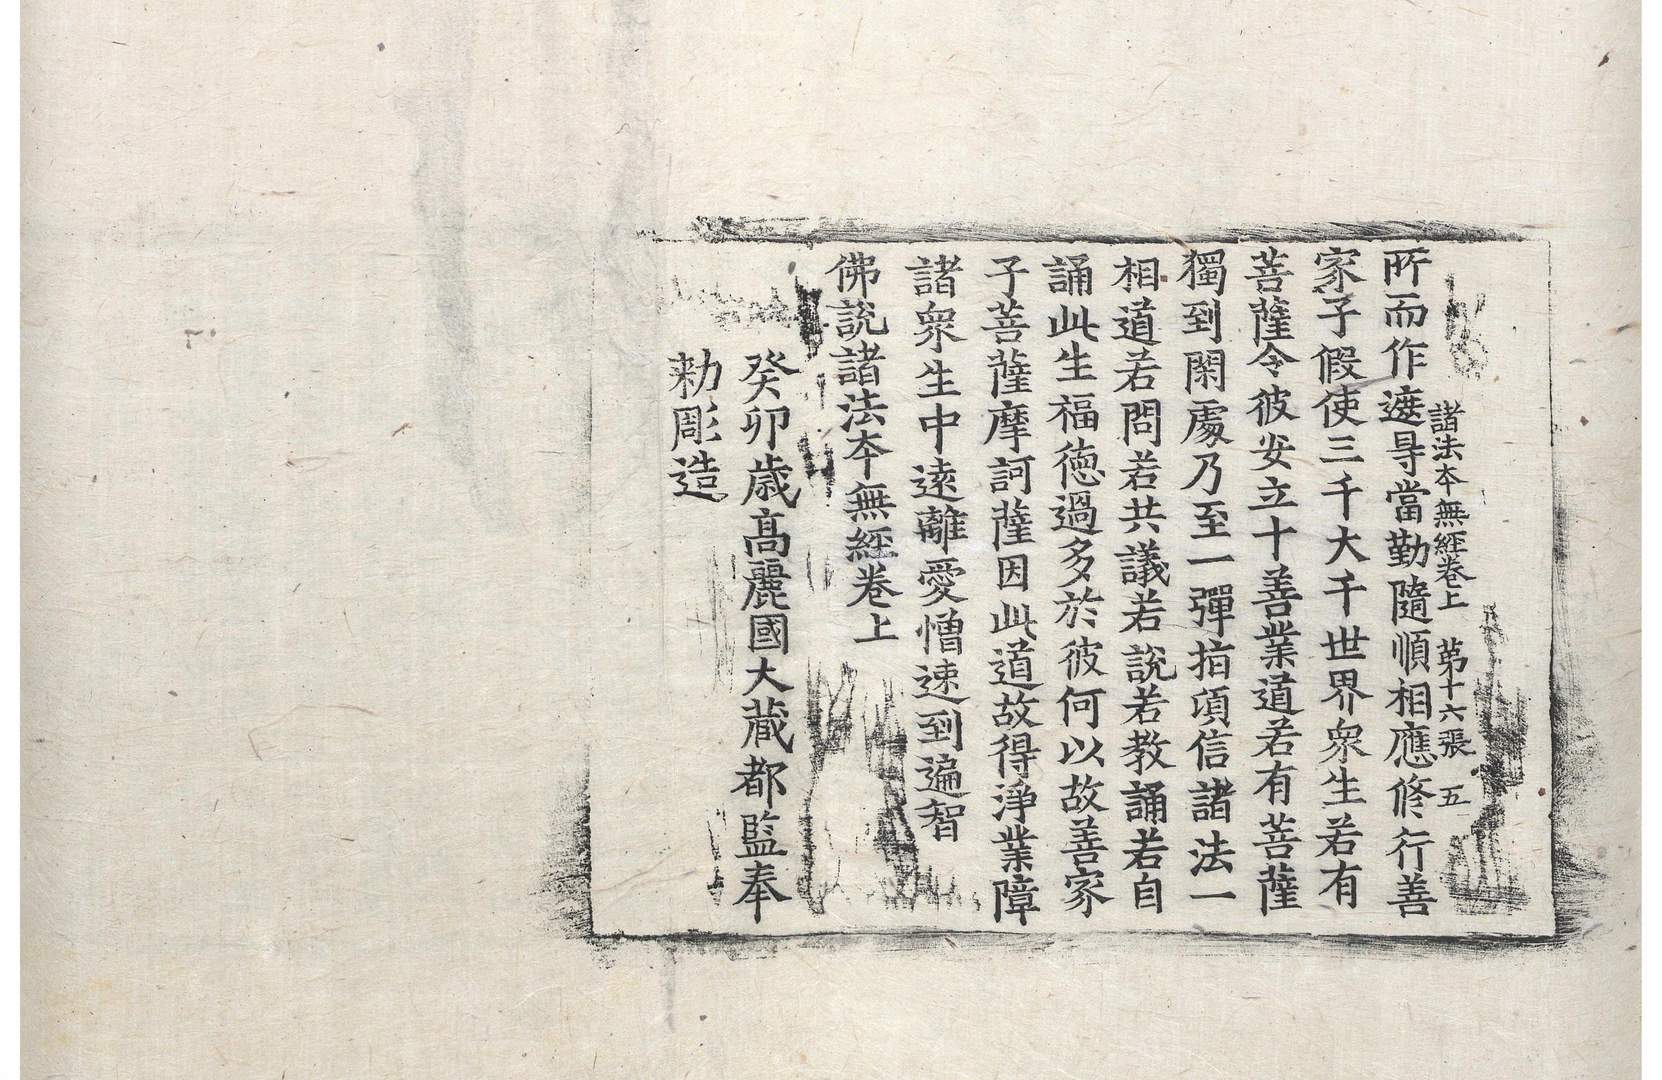 諸法本無經卷上 第十六張 五
所而作遮㝵當勤隨順相應修行善
家子假使三千大千世界衆生若有
菩薩令彼安立十善業道若有菩薩
獨到閑處乃至一彈指頃信諸法一
相道若問若共議若說若教誦若自
誦此生福德過多於彼何以故善家
子菩薩摩訶薩因此道故得淨業障
諸衆生中遠離愛憎速到遍智
佛說諸法本無經卷上
癸卯歲高麗國大藏都監奉
勅彫造